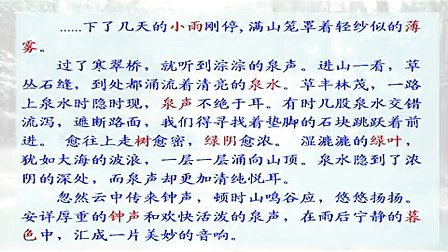 ……下了几天的小雨刚停,满山笼罩着轻纱似的薄
雾。
过了寒翠桥,就听到淙淙的泉声。进山一看,草
丛石缝,到处都涌流着清亮的泉水。草丰林茂,一路
上泉水时隐时现,泉声不绝于耳。有时几股泉水交错
流泻,遮断路面,我们得寻找着垫脚的石块跳跃着前
进。 愈往上走树愈密,绿阴愈浓。 湿漉漉的绿叶,
犹如大海的波浪,一层一层涌向山顶。泉水隐到了浓
阴的深处,而泉声却更加清纯悦耳。
忽然云中传来钟声,顿时山鸣谷应,悠悠扬扬。
安详厚重的钟声和欢快活泼的泉声,在雨后宁静的暮
色中,汇成一片美妙的音响。